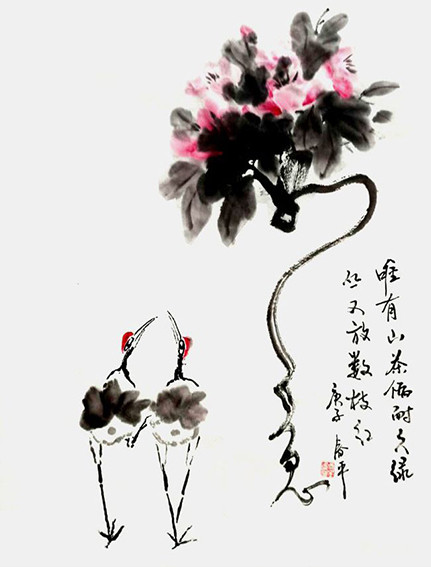 唯有山茶偏耐久绿
丛又放数枝红
庚子 春平